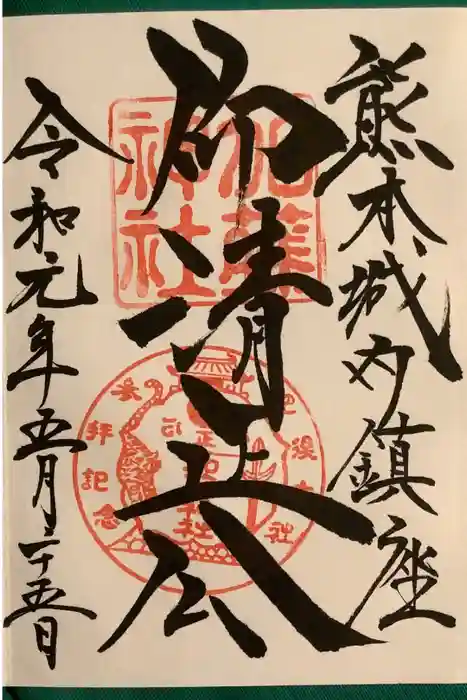 熊本城内鎮座
仰清正公
令和元年五月二十五日
加藤
神社
参拝記念